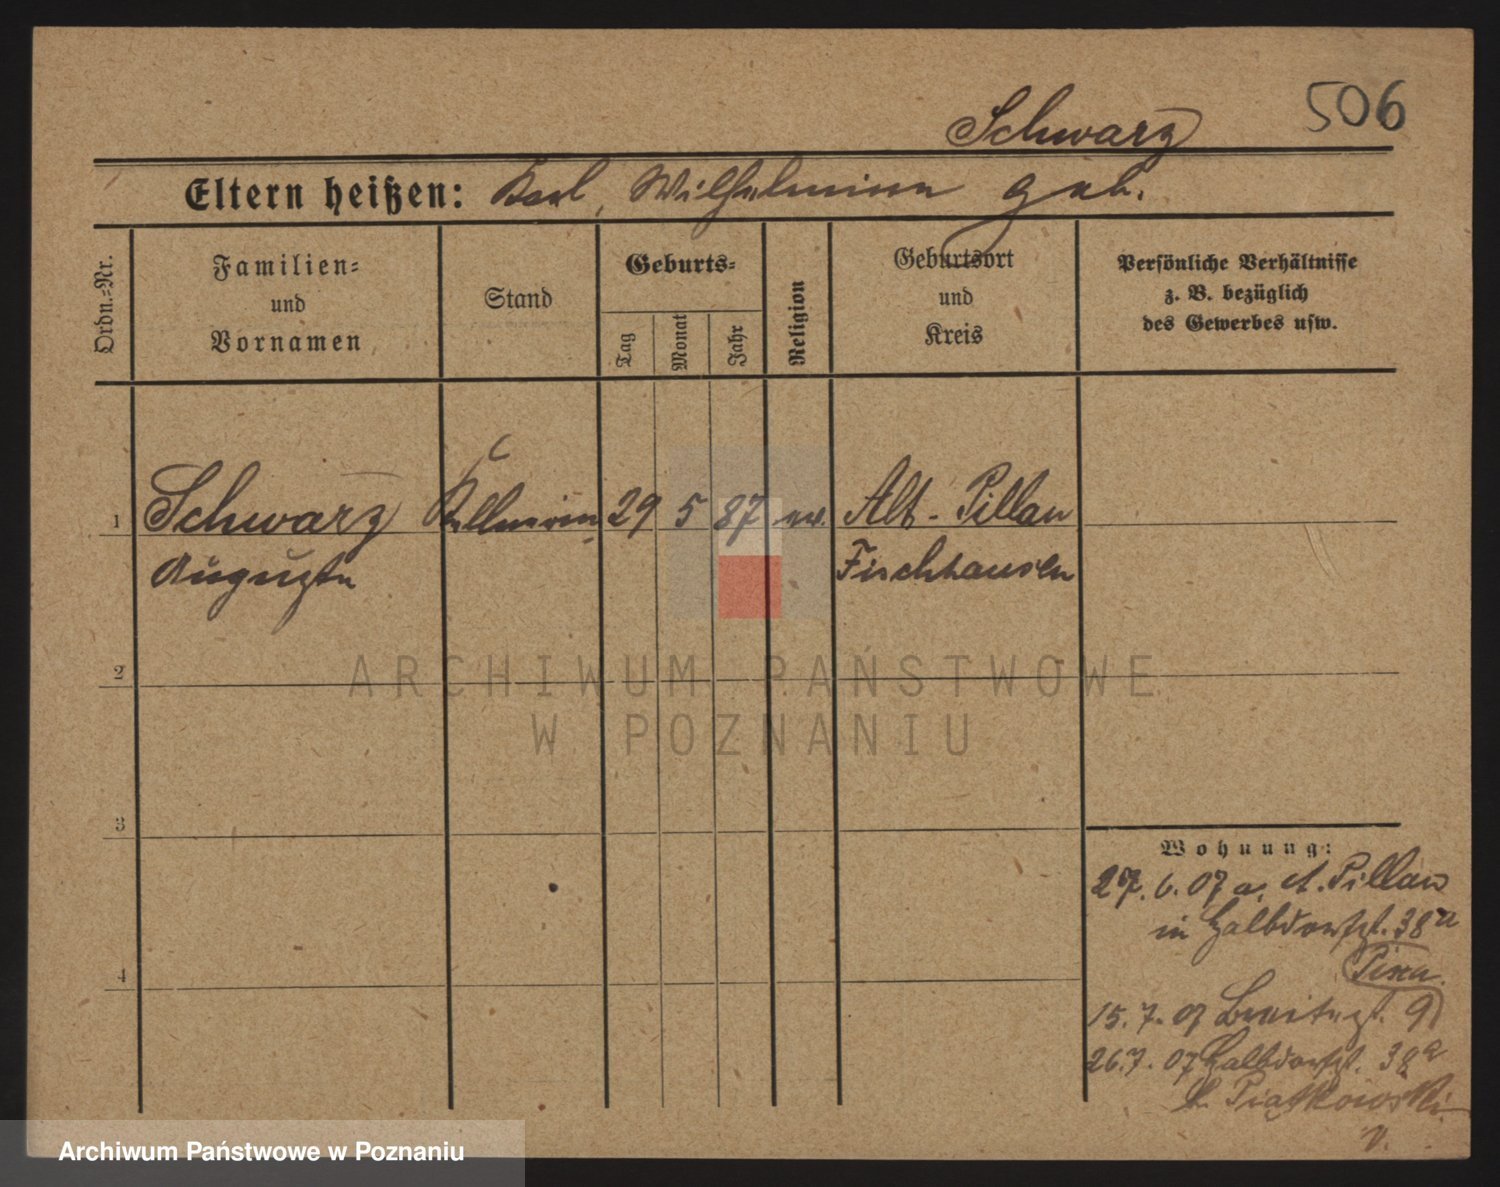 506
Schwarz
Eltern heißen: Karl, Wilhelmine geb.
Ordn.=Nr.
Familien=
und
Vornamen
Stand
Geburts=
Tag
Monat
Jahr
Religion
Geburtsort
und
Kreis
Persönliche Verhältnisse
z. B. bezüglich
des Gewerbes usw.
1 Schwarz Kellnerin 29 5 87 ev. Alt-Pillau
Auguste Fischhausen
2
3
4
Wohnung:
27. 6. 07 a. A. Pillau
in Halbdorfst. 38a
15. 7. 07 Breitest. 9
26. 7. 07 Halbdorfst. 38a
b. Piątkowski
ARCHIWUM PAŃSTWOWE
W POZNANIU
Archiwum Państwowe w Poznaniu